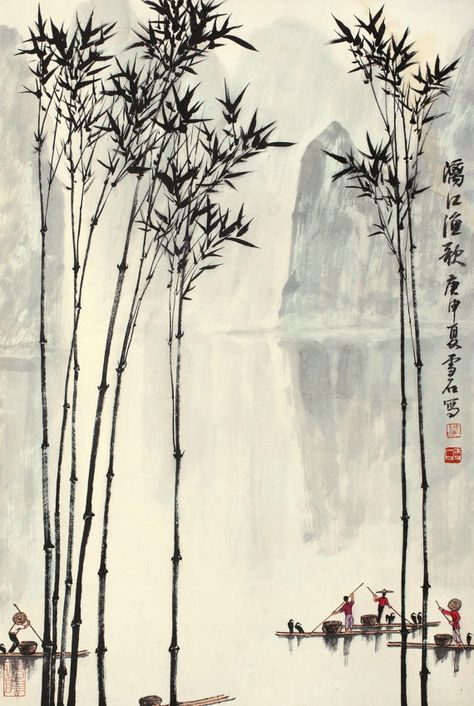 漓江渔歌 庚申夏雪石写